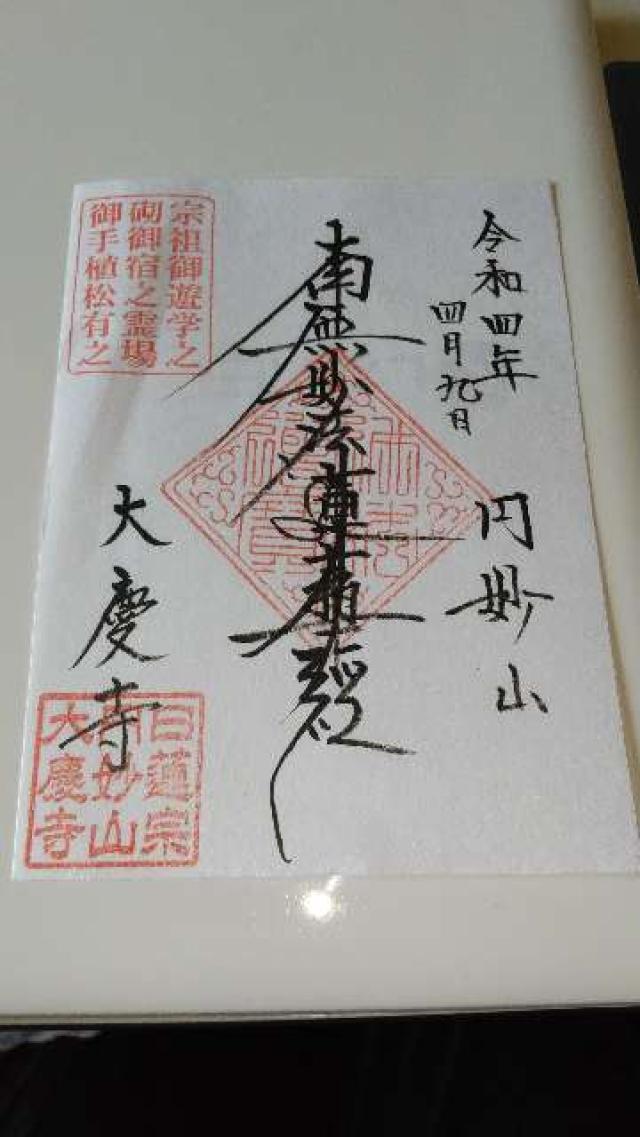 令和四年
四月九日
円妙山
南無妙法蓮華経
大慶寺
宗祖御遊学之
砌御宿之霊場
御手植松有之
日蓮宗
円妙山
大慶寺